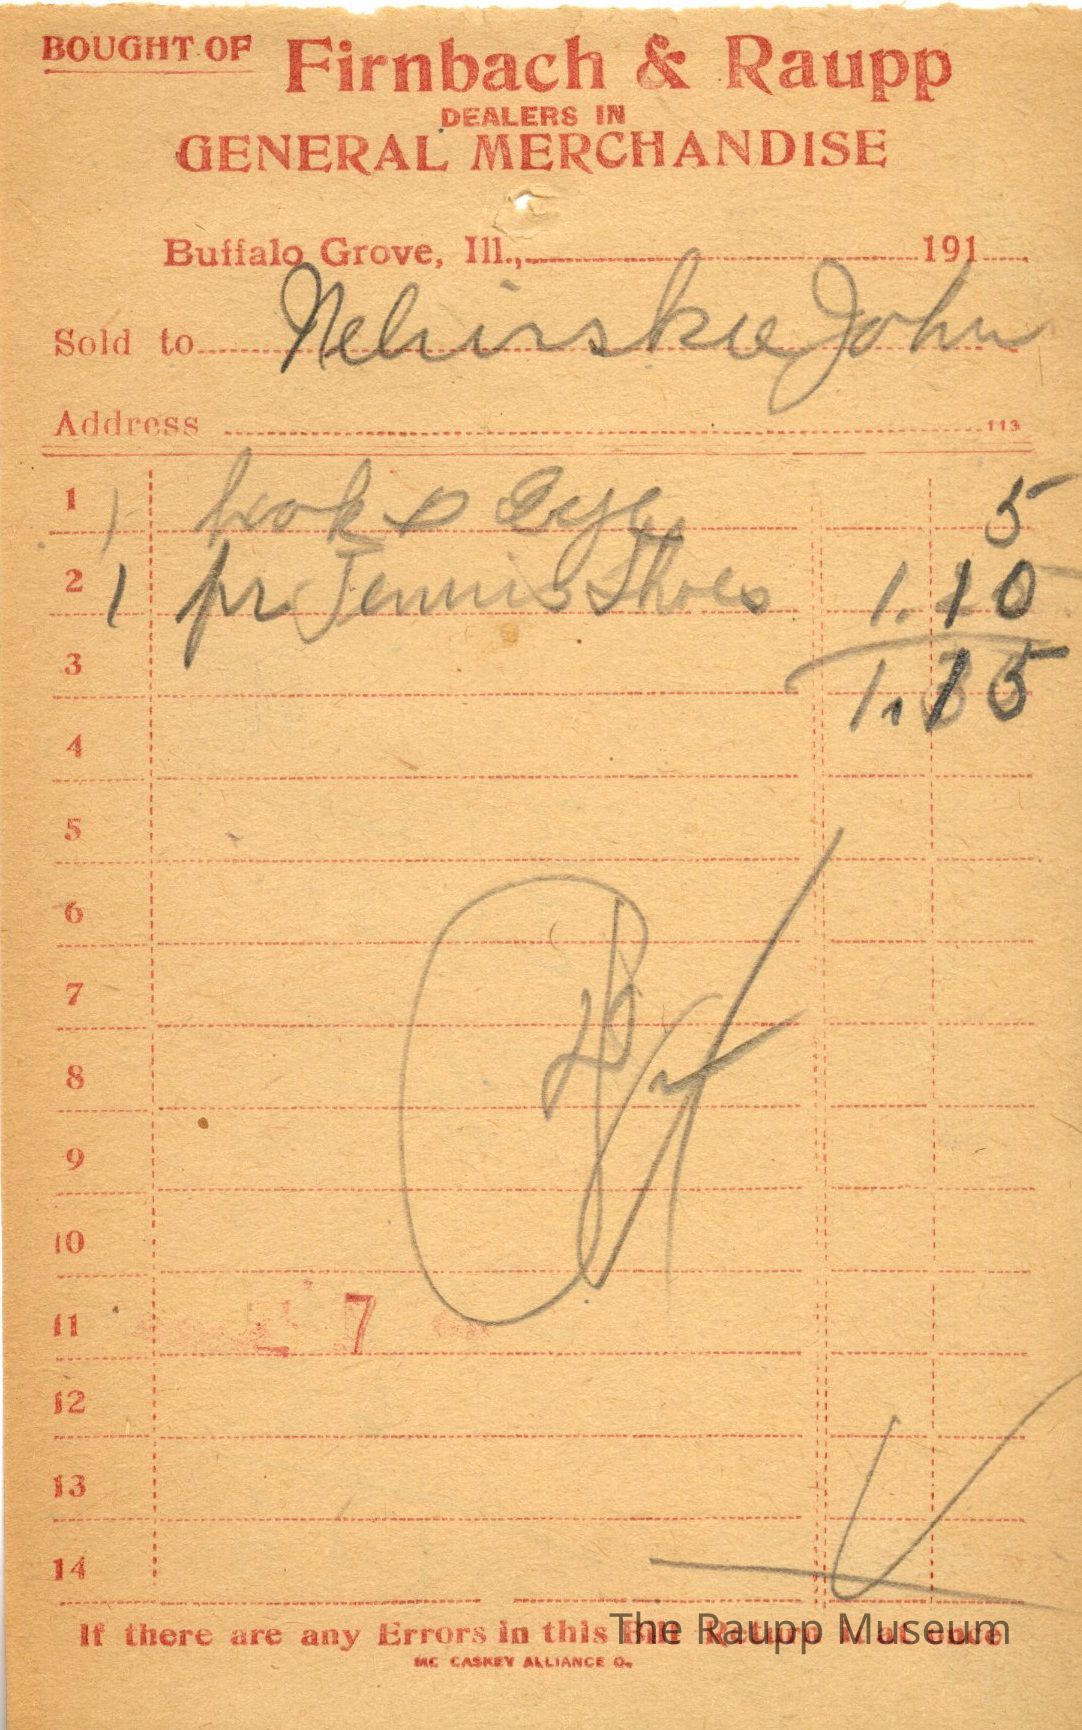 BOUGHT OF Firnbach & Raupp
DEALERS IN
GENERAL MERCHANDISE
Buffalo Grove, Ill., 191
Sold to John
Address 113
1 1 hook & Eye 5
2 1 pr Tennis Shoes 1.10
3 1.15
4
5
6
7
8
9
10
11 7
12
13
14
If there are any Errors in this Bill Return it at once
The Raupp Museum
MC CASKEY ALLIANCE O.